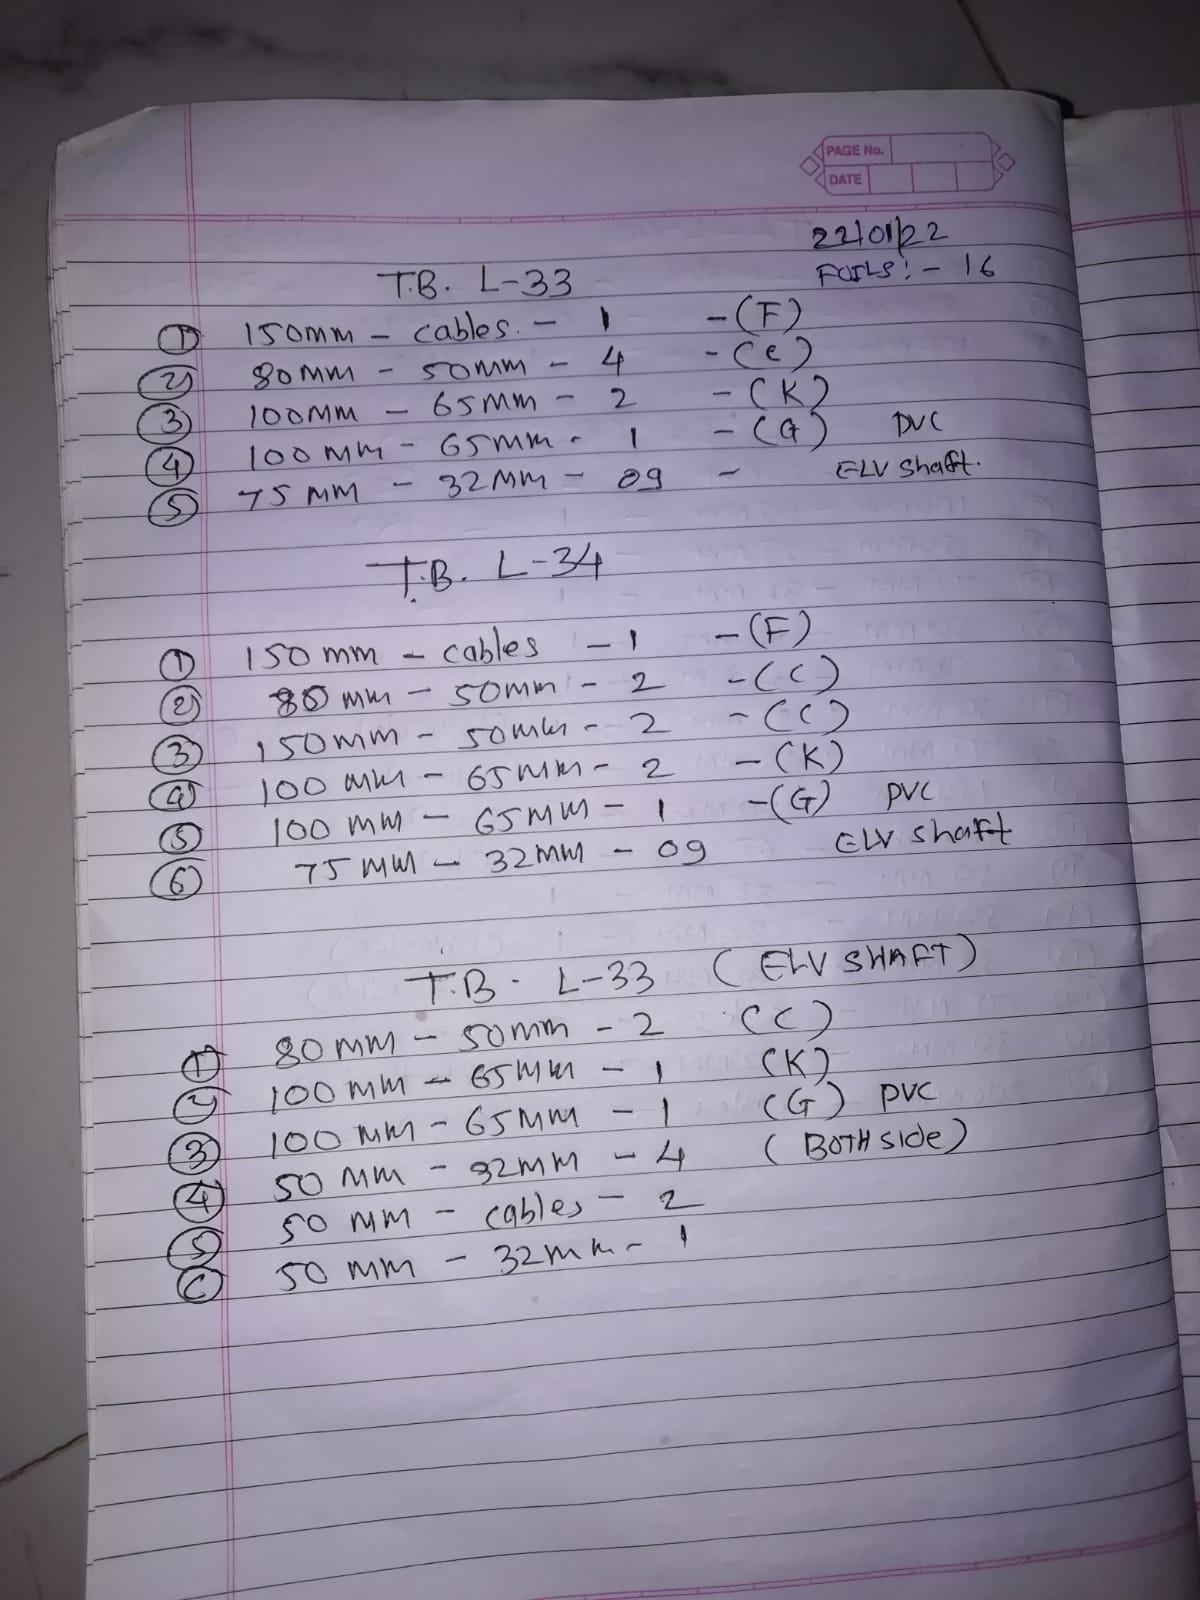 PAGE No.
DATE
22/01/22
T.B. L-33
FOILS:- 16
① 150mm - cables. - 1 -(F)
② 80mm - 50mm - 4 -(C)
③ 100mm - 65mm - 2 -(K)
④ 100mm - 65mm - 1 -(G) PVC
⑤ 75mm - 32mm - 09 - ELV shaft.
T.B. L-34
① 150mm - cables - 1 -(F)
② 80mm - 50mm - 2 -(C)
③ 150mm - 50mm - 2 -(C)
④ 100mm - 65mm - 2 -(K)
⑤ 100mm - 65mm - 1 -(G) PVC
⑥ 75mm - 32mm - 09 ELV shaft
T.B. L-33 (ELV SHAFT)
① 80mm - 50mm - 2 (C)
② 100mm - 65mm - 1 (K)
③ 100mm - 65mm - 1 (G) PVC
④ 50mm - 32mm - 4 (BOTH side)
⑤ 50mm - cables - 2
⑥ 50mm - 32mm - 1